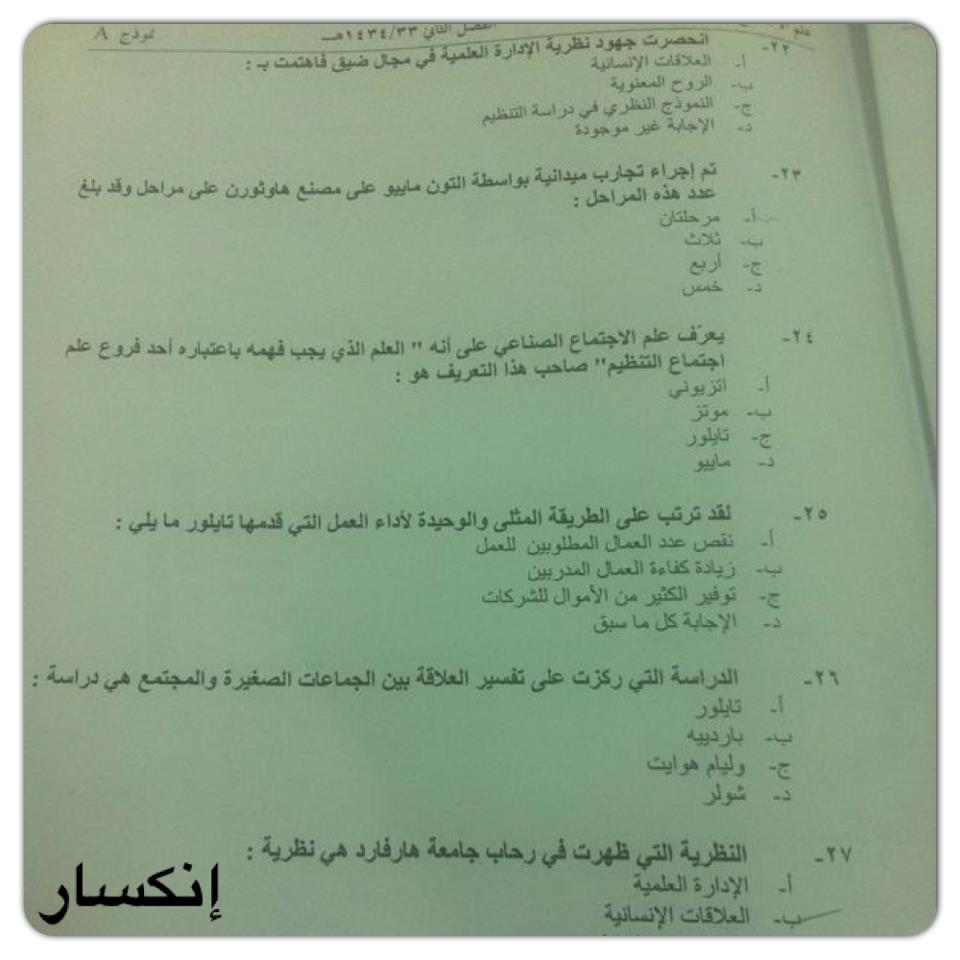 الفصل الثاني ١٤٣٤/٣٣هـ نموذج A
٢٢- انحصرت جهود نظرية الإدارة العلمية في مجال ضيق فاهتمت بـ :
أ- العلاقات الإنسانية
ب- الروح المعنوية
ج- النموذج النظري في دراسة التنظيم
د- الإجابة غير موجودة
٢٣- تم إجراء تجارب ميدانية بواسطة التون ماييو على مصنع هاوثورن على مراحل وقد بلغ
عدد هذه المراحل :
أ- مرحلتان
ب- ثلاث
ج- أربع
د- خمس
٢٤- يعرّف علم الاجتماع الصناعي على أنه " العلم الذي يجب فهمه باعتباره أحد فروع علم
اجتماع التنظيم" صاحب هذا التعريف هو :
أ- اتزيوني
ب- موتز
ج- تايلور
د- ماييو
٢٥- لقد ترتب على الطريقة المثلى والوحيدة لأداء العمل التي قدمها تايلور ما يلي :
أ- نقص عدد العمال المطلوبين للعمل
ب- زيادة كفاءة العمال المدربين
ج- توفير الكثير من الأموال للشركات
د- الإجابة كل ما سبق
٢٦- الدراسة التي ركزت على تفسير العلاقة بين الجماعات الصغيرة والمجتمع هي دراسة :
أ- تايلور
ب- باردييه
ج- وليام هوايت
د- شولر
٢٧- النظرية التي ظهرت في رحاب جامعة هارفارد هي نظرية :
أ- الإدارة العلمية
ب- العلاقات الإنسانية
إنكسار